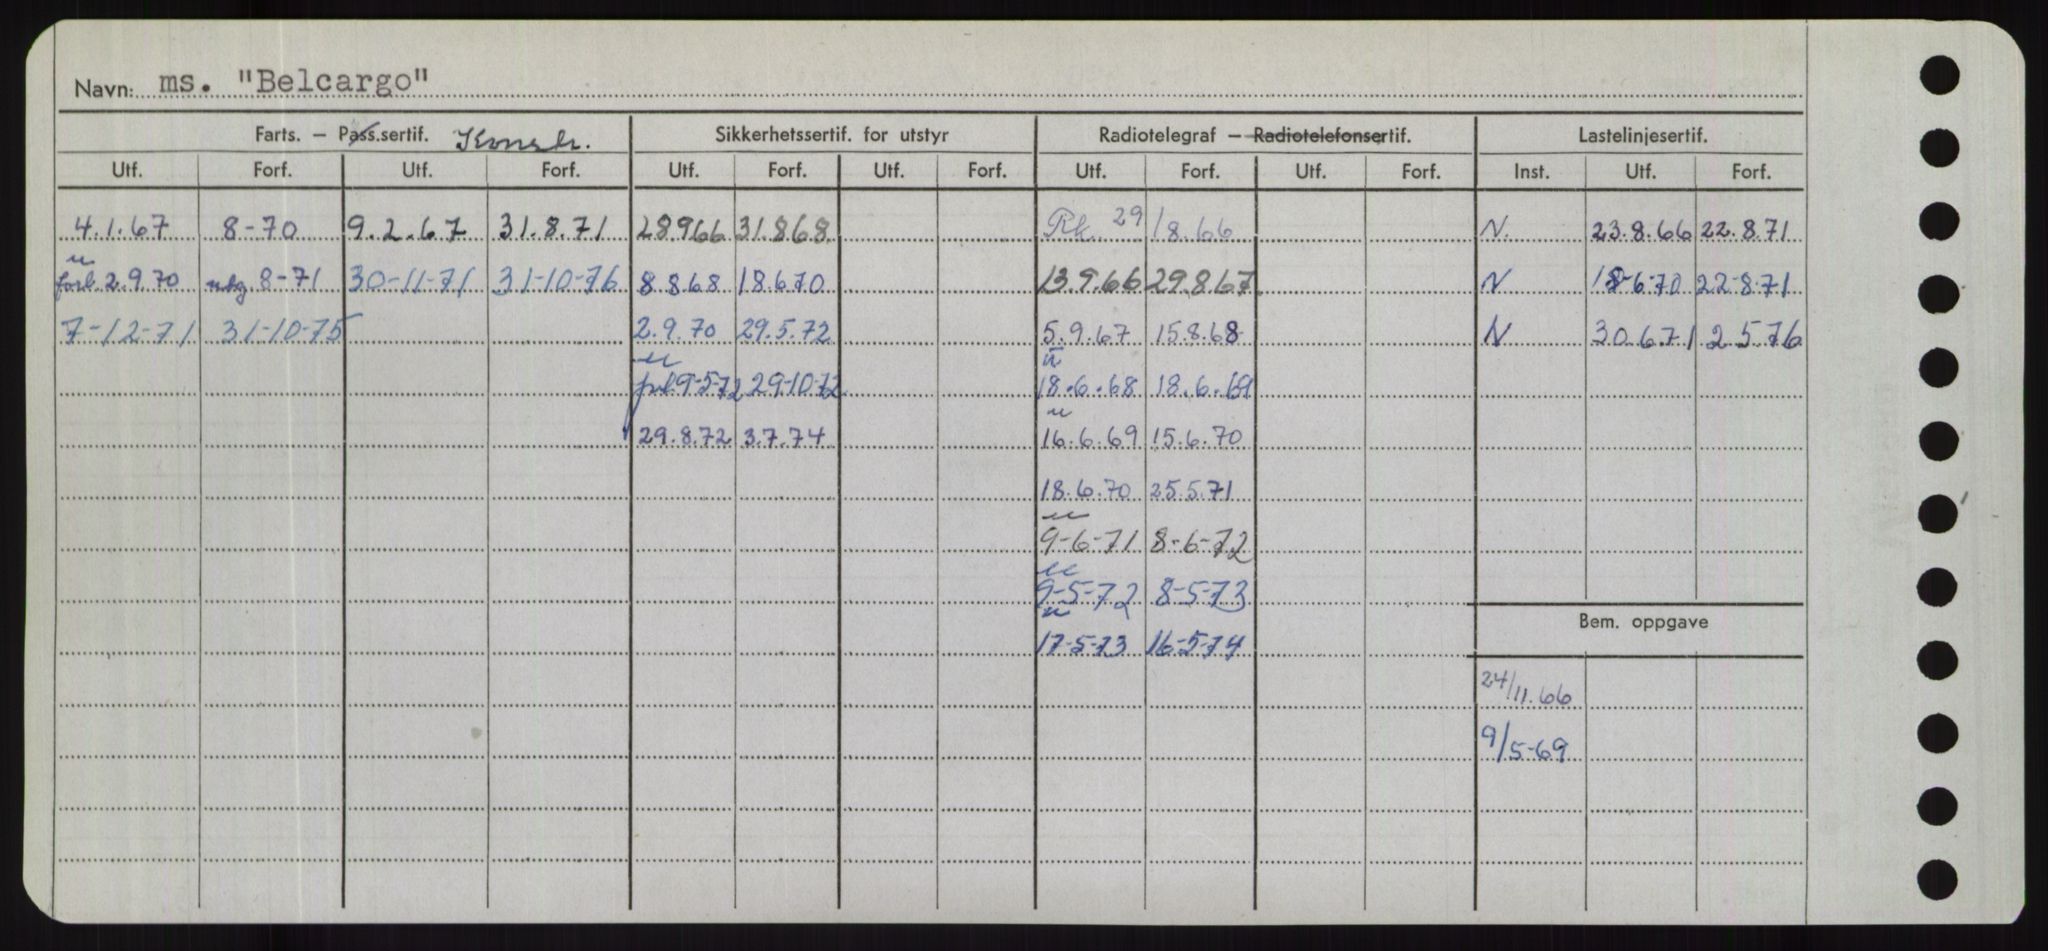 Navn: ms. "Belcargo"
Farts. – Pass.sertif. Konstr. Sikkerhetssertif. for utstyr Radiotelegraf – Radiotelefonsertif. Lastelinjesertif.
Utf. Forf. Utf. Forf. Utf. Forf. Utf. Forf. Utf. Forf. Utf. Forf. Inst. Utf. Forf.
4.1.67 8-70 9.2.67 31.8.71 28966 31.868 Rk. 29/8.66 N. 23.8.66 22.8.71
u
forl. 2.9.70 8-71 30-11-71 31-10-76 8.8.68 18.6.70 13.9.66 29.8.67. N 18-6-70 22-8-71
7-12-71 31-10-75 2.9.70 29.5.72 5.9.67 15.8.68 N 30.6.71 2.5.76
u u
forl. 9-5-72 29-10-72 18.6.68 18.6.69
u
29.8.72 3.7.74 16.6.69 15.6.70
18.6.70 25.5.71
u
9-6-71 8-6-72
u
9-5-72 8-5-73
u
Bem. oppgave
17-5-73 16-5-74
24/11.66
9/5-69